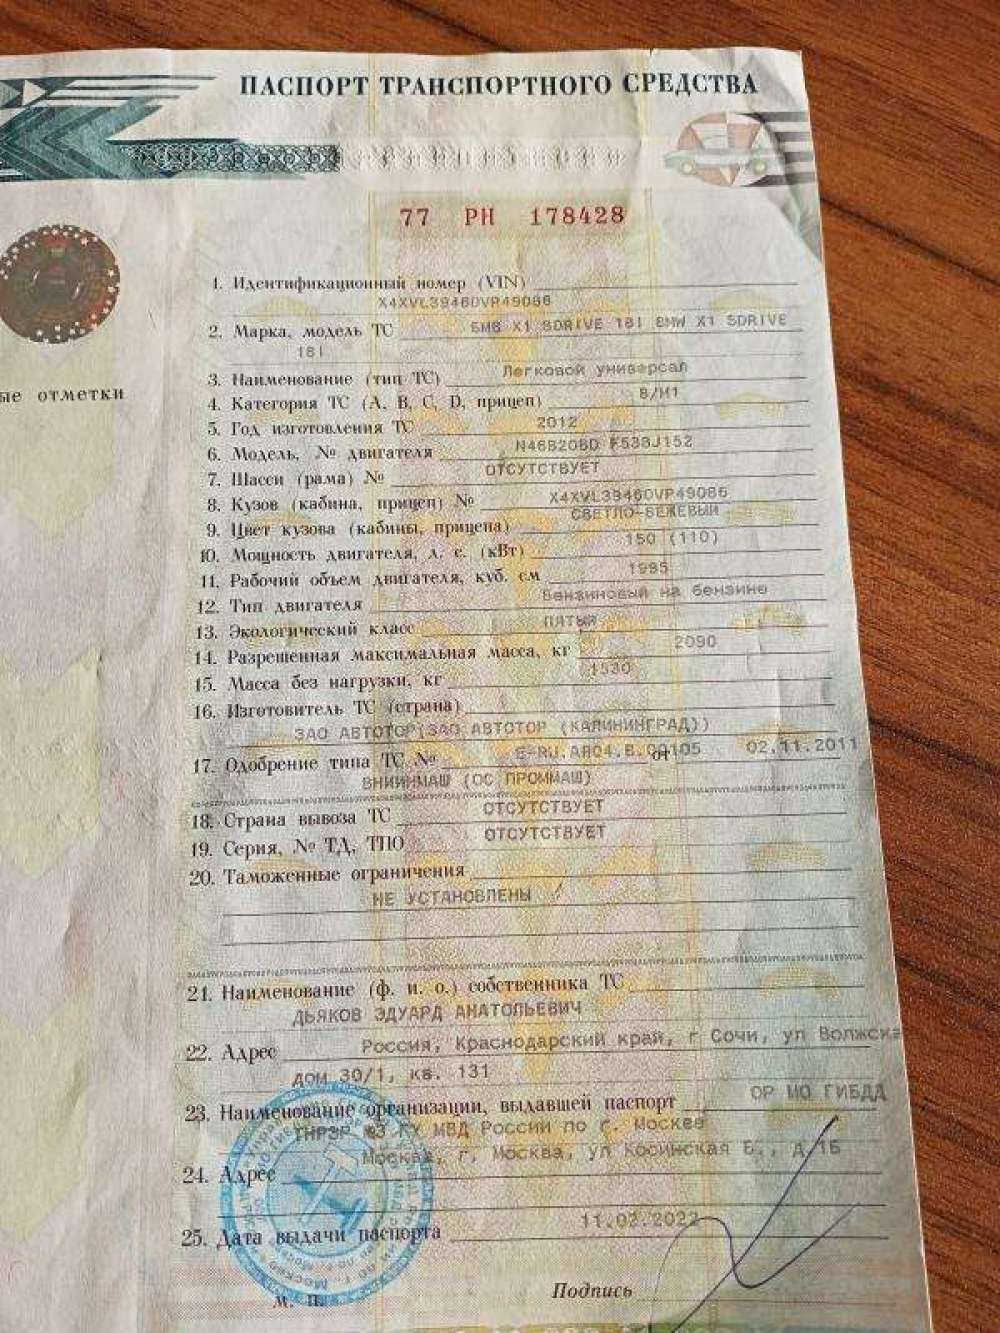 ПАСПОРТ ТРАНСПОРТНОГО СРЕДСТВА
77 РН 178428
ые отметки
1. Идентификационный номер (VIN)
X4XVL39460VP49086
2. Марка, модель ТС БМВ X1 SDRIVE 18I BMW X1 SDRIVE
18I
3. Наименование (тип ТС) Легковой универсал
4. Категория ТС (A, B, C, D, прицеп) B/M1
5. Год изготовления ТС 2012
6. Модель, № двигателя N46B20BD F538J152
7. Шасси (рама) № ОТСУТСТВУЕТ
8. Кузов (кабина, прицеп) № X4XVL39460VP49086
9. Цвет кузова (кабины, прицепа) СВЕТЛО-БЕЖЕВЫЙ
10. Мощность двигателя, л. с. (кВт) 150 (110)
11. Рабочий объем двигателя, куб. см 1995
12. Тип двигателя Бензиновый на бензине
13. Экологический класс ПЯТЫЙ
14. Разрешенная максимальная масса, кг 2090
15. Масса без нагрузки, кг 1530
16. Изготовитель ТС (страна)
ЗАО АВТОТОР(ЗАО АВТОТОР (КАЛИНИНГРАД))
17. Одобрение типа ТС № E-RU.АЯ04.B.00105 от 02.11.2011
ВНИИНМАШ (ОС ПРОММАШ)
18. Страна вывоза ТС ОТСУТСТВУЕТ
19. Серия, № ТД, ТПО ОТСУТСТВУЕТ
20. Таможенные ограничения
НЕ УСТАНОВЛЕНЫ
21. Наименование (ф. и. о.) собственника ТС
ДЬЯКОВ ЭДУАРД АНАТОЛЬЕВИЧ
22. Адрес Россия, Краснодарский край, г Сочи, ул Волжска
дом 30/1, кв. 131
23. Наименование организации, выдавшей паспорт ОР МО ГИБДД
ТНРЭР №3 ГУ МВД России по г. Москве
24. Адрес Москва, г, Москва, ул Косинская Б., д 1Б
25. Дата выдачи паспорта 11.02.2022
М. П. Подпись